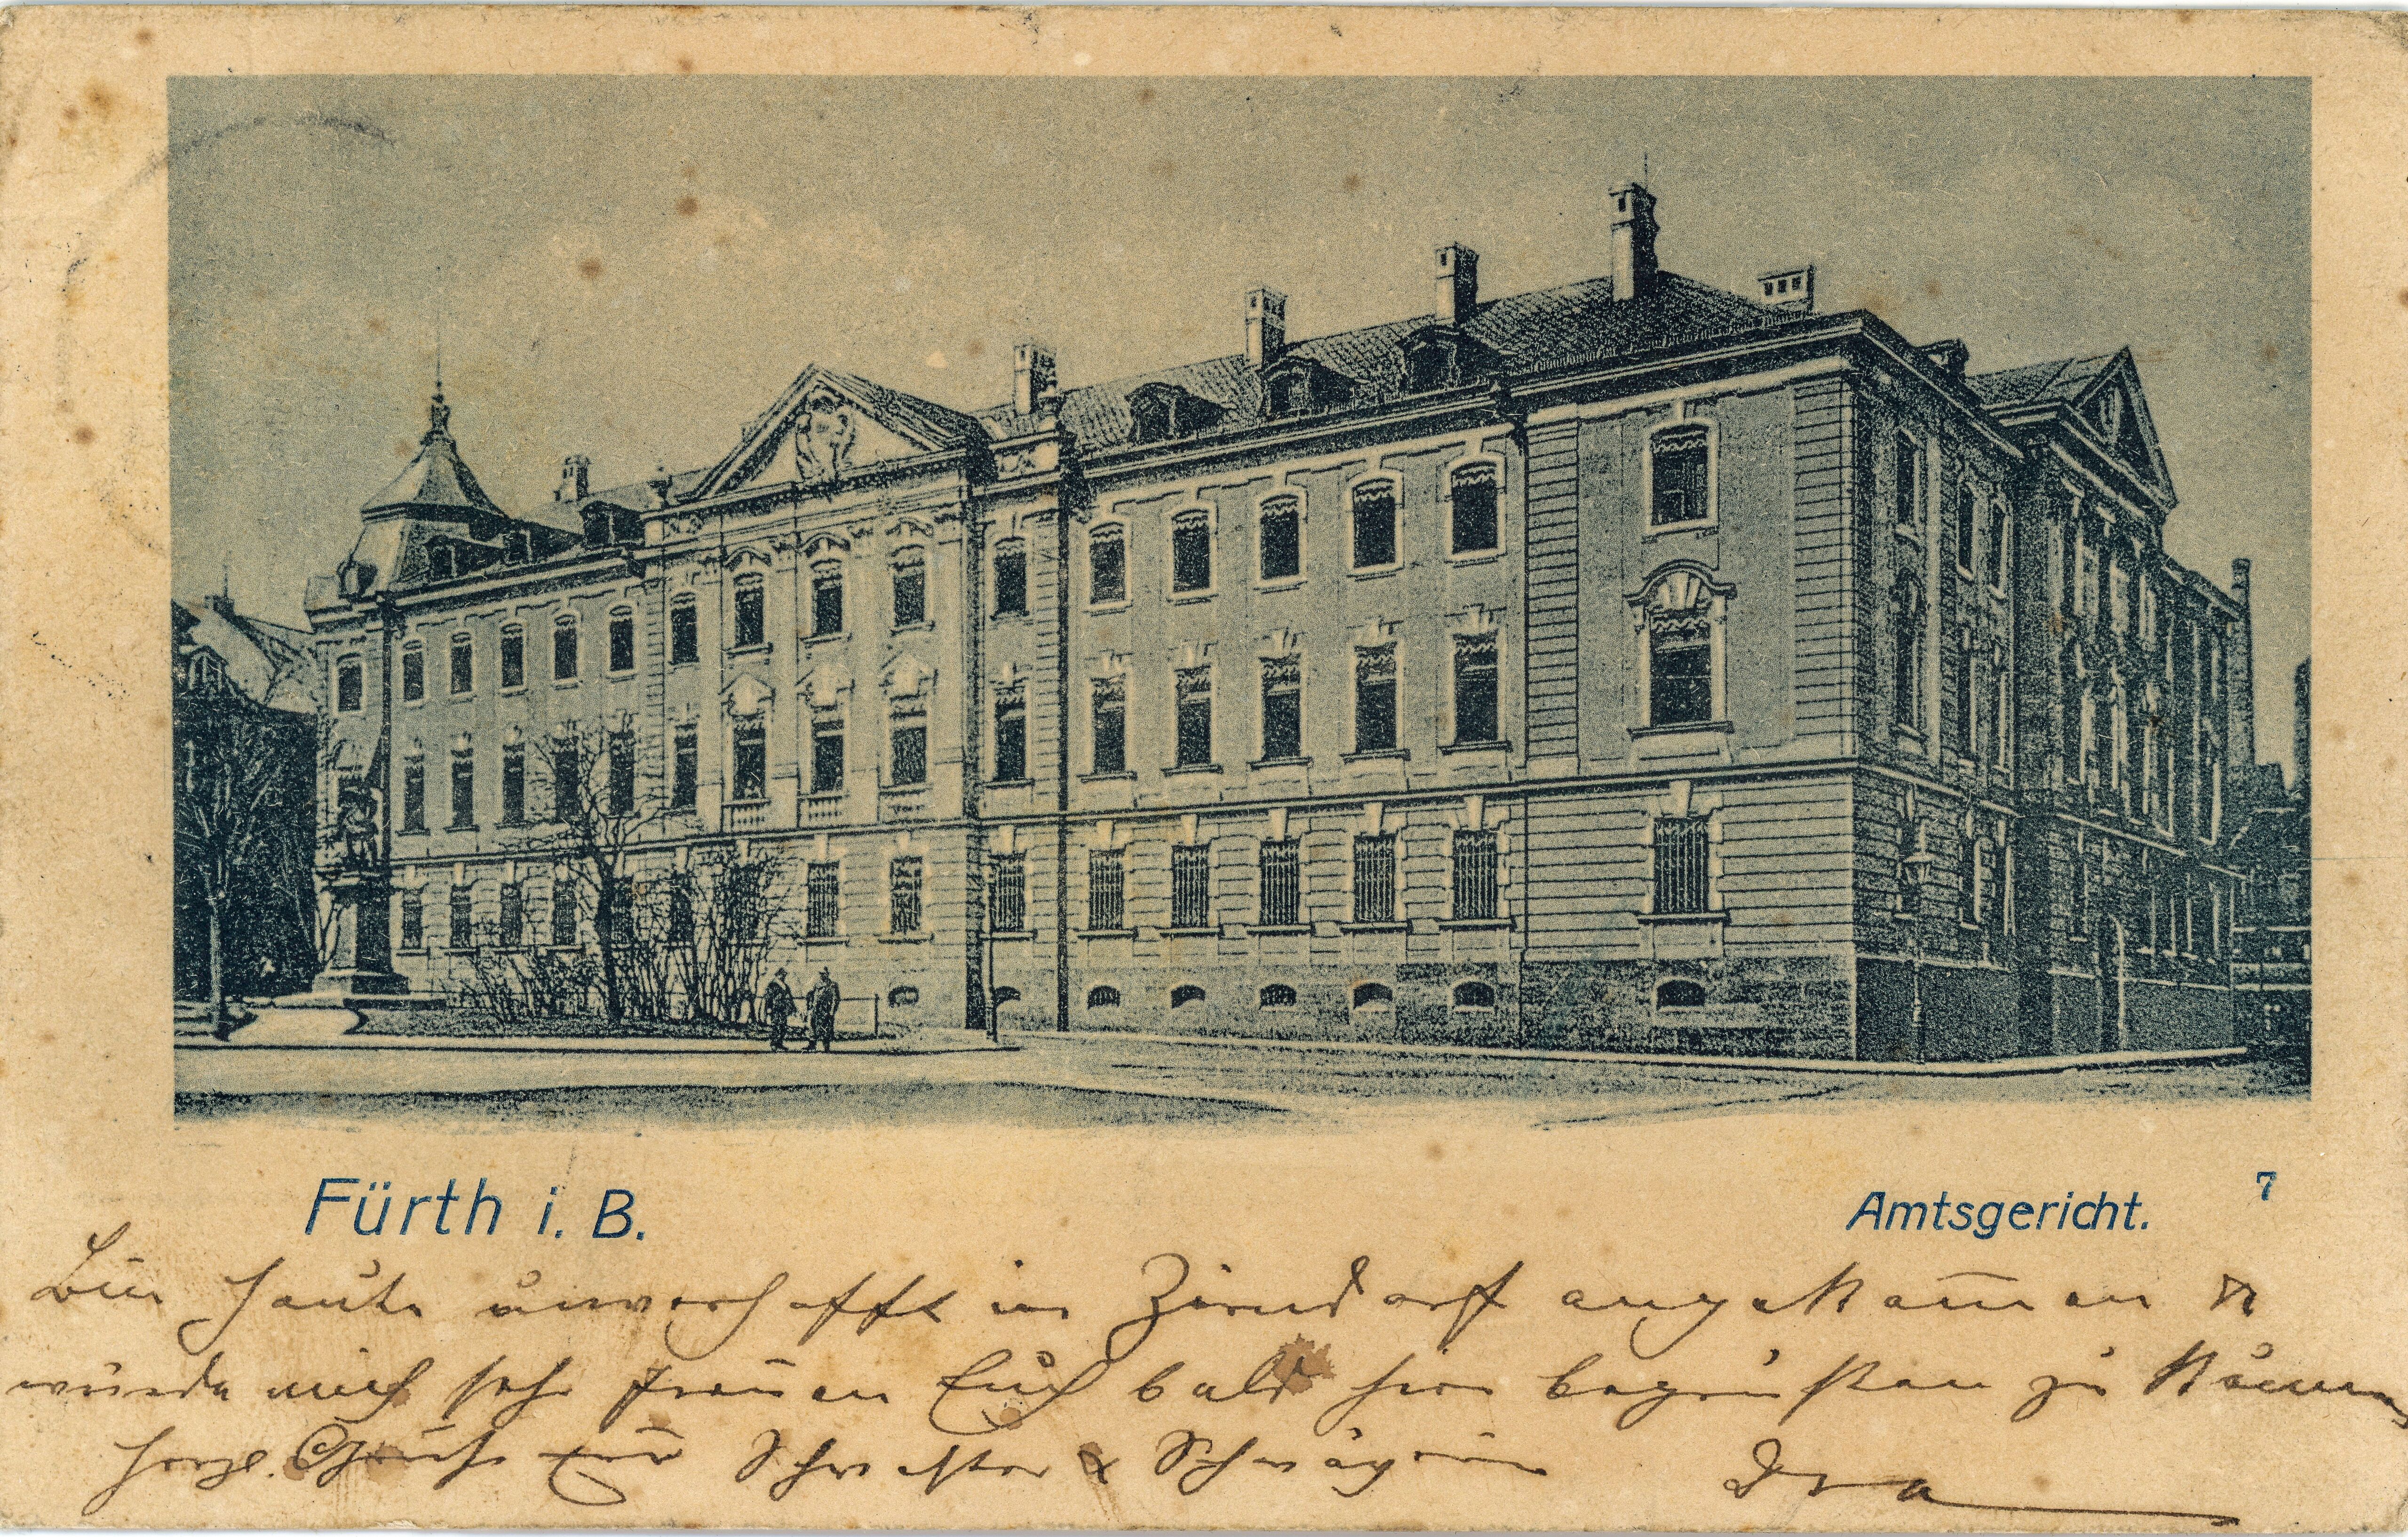 Fürth i. B.
Amtsgericht.
7
Bin heute unverhofft in Zirndorf angekom̅en &
würde mich sehr freuen Euch bald hier begrüßen zu
herzl. Grüße Schwester & Schwägerin